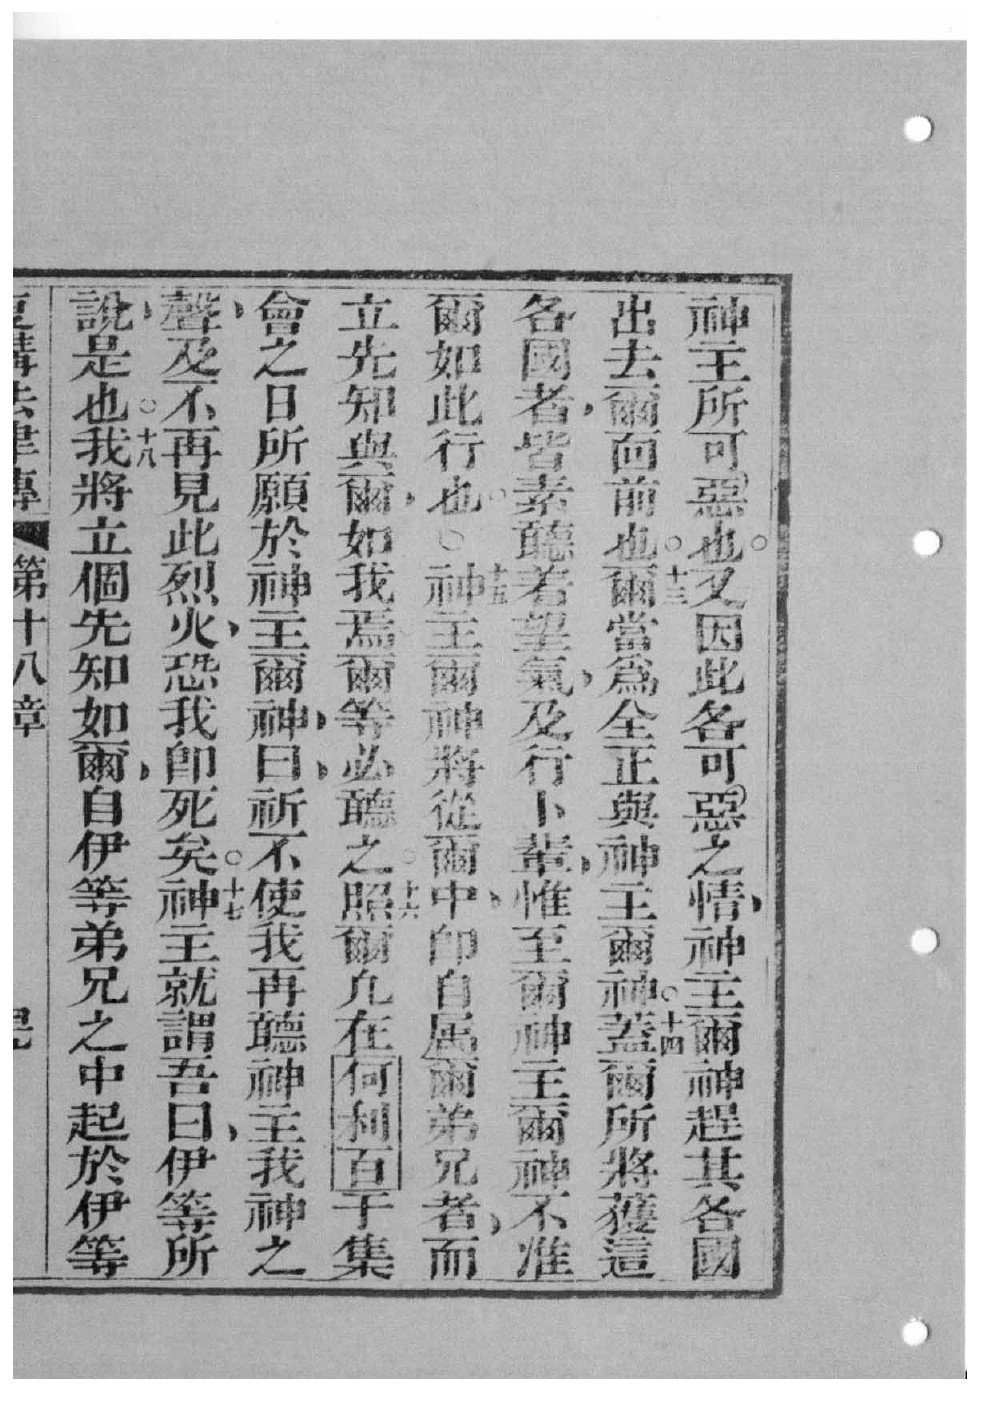 神主所可惡也又因此各可惡之情神主爾神趕其各國
出去爾面前也○十三爾當為全正與神主爾神○十四蓋爾所將獲這
各國者皆素聽着望氣及行卜輩惟至爾神主爾神不准
爾如此行也○十五神主爾神將從爾中即自属爾弟兄者而
立先知與爾如我焉爾等必聽之○十六照爾凢在何利百于集
會之日所願於神主爾神曰祈不使我再聽神主我神之
聲及不再見此烈火恐我即死矣○十七神主就謂吾曰伊等所
說是也○十八我將立個先知如爾自伊等弟兄之中起於伊等
復講法律傳 第十八章